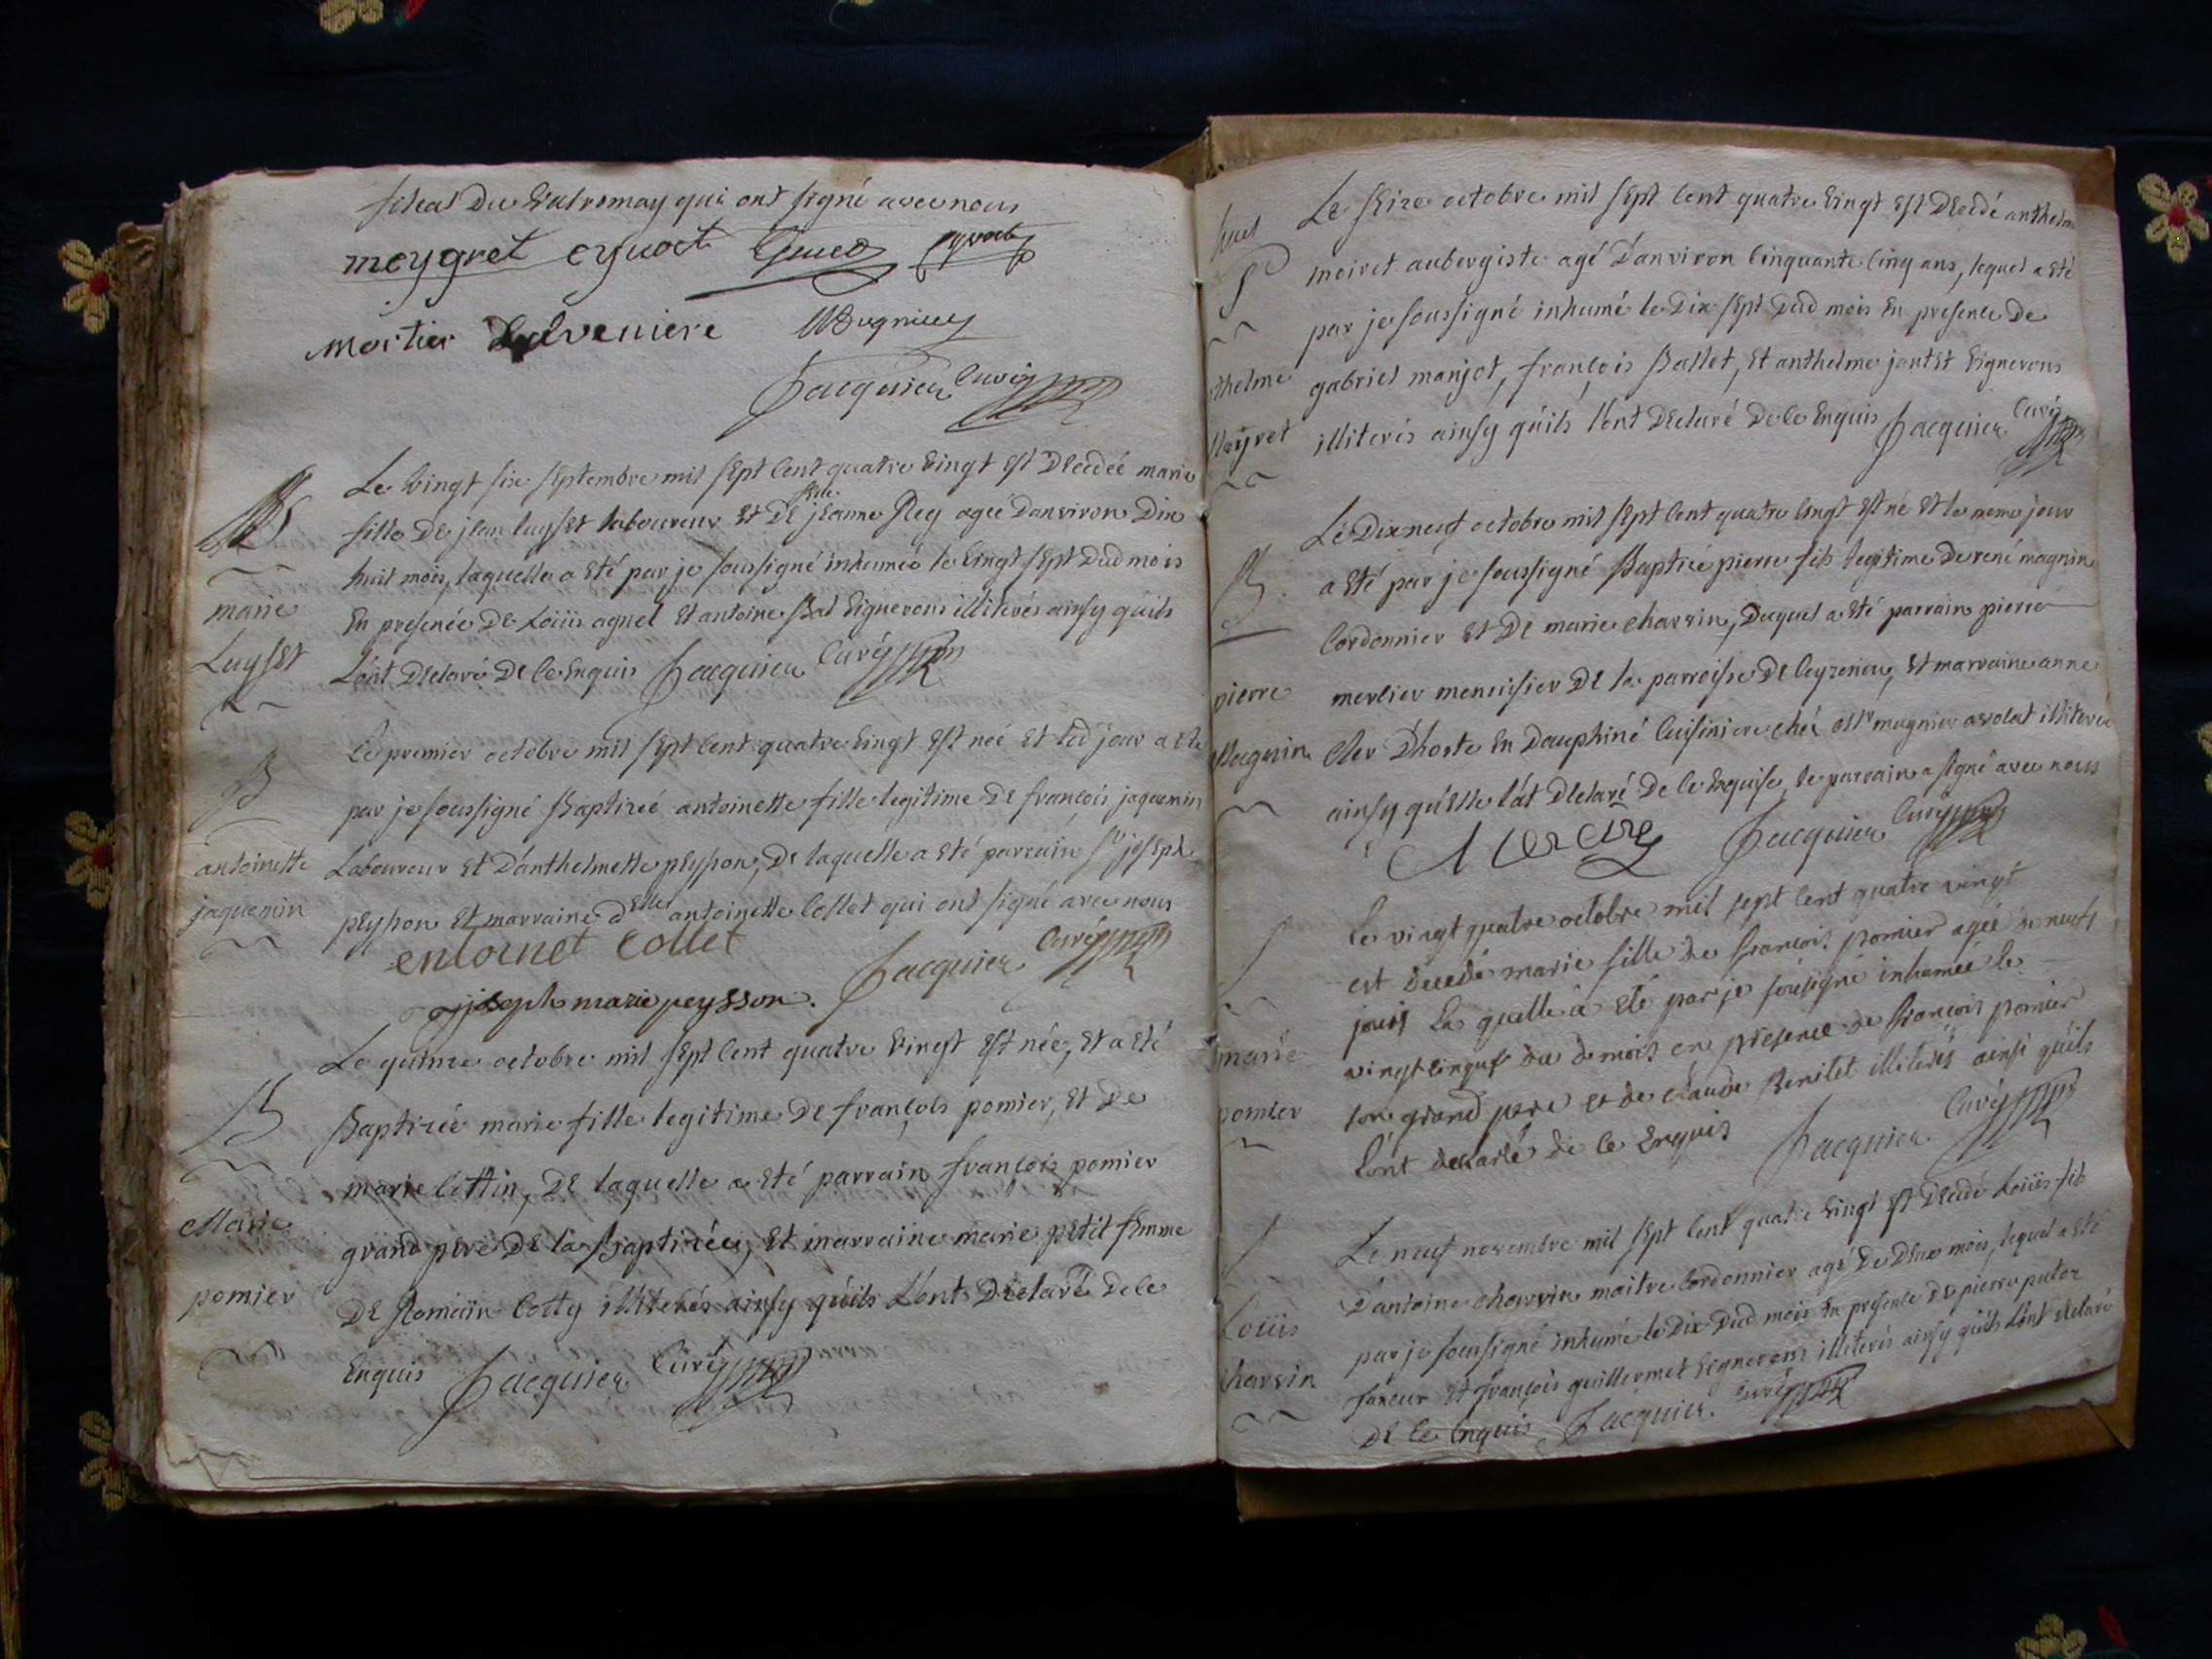 qui ont signé avec nous
meygret cyvoct
mortier
Jacquier Curé
S
marie
Luyset
Le vingt six septembre mil sept cent quatre vingt est décédée marie
fille de jean luyset laboureur et de feue jeanne Rey agée d'anviron dix
huit mois, laquelle a eté par je soussigné inhumée le vingt sept dud mois
en presence de Loüis agnel et antoine Bal vignerons illiterés ainsy qu'ils
l'ont déclaré de ce enquis Jacquier Curé
B
antoinette
jaquemin
Le premier octobre mil sept cent quatre vingt est néé et led jour a eté
par je soussigné Baptizéé antoinette fille legitime de françois jaquemin
Laboureur et d'anthelmette peysson, de laquelle a eté parrain sr joseph
peysson et marraine delle antoinette Collet qui ont signé avec nous
entoinet collet
joseph marie peysson. Jacquier Curé
B
Marie
pomier
Le quinze octobre mil sept cent quatre vingt est née, et a eté
Baptizéé marie fille legitime de françois pomier, et de
marie Cettin, de laquelle a eté parrain françois pomier
grand pere de la Baptizéé, et marraine marie petit femme
de Romain Cotty illiterés ainsy qu'ils l'ont déclaré de ce
enquis Jacquier Curé
S
thelme
Mayret
Le seize octobre mil sept cent quatre vingt est décédé anthelme
moiret aubergiste agé d'anviron cinquante cinq ans, lequel a eté
par je soussigné inhumé le dix sept dud mois en presence de
gabriel manjot, françois Ballet, et anthelme jantet vignerons
illiterés ainsy qu'ils l'ont déclaré de ce enquis Jacquier Curé
B
pierre
Magnin
Le dix neuf octobre mil sept cent quatre vingt est né et le même jour
a eté par je soussigné Baptizé pierre fils legitime de rené magnin
Cordonnier et de marie charvin, duquel a eté parrain pierre
merlier menuisier de la parroisse de Ceyzerieu, et marraine anne
d'hoste en Dauphiné Cuisiniere chéz Mr mugnier avocat illiterée
ainsy qu'elle l'at déclaré de ce enquise, le parrain a signé avec nous
Jacquier Curé
S
marie
pomier
Le vingt quatre octobre mil sept cent quatre vingt
est decedé marie fille de françois pomier agéé de neufs
jours La quelle à eté par je soussigné inhumée le
vingt cinquf du d mois en presence de François pomier
son grand pere et de claude Benitet illiterés ainsi qu'ils
l'ont declaré de ce enquis Jacquier Curé
S
Loüis
charvin
Le neuf novembre mil sept cent quatre vingt est décédé Loüis fils
d'antoine charvin maitre Cordonnier agé de deux mois, lequel a eté
par je soussigné inhumé le dix dud mois en presence de pierre
et françois guillermet vignerons illiterés ainsy qu'ils l'ont déclaré
de ce enquis Jacquier. Curé